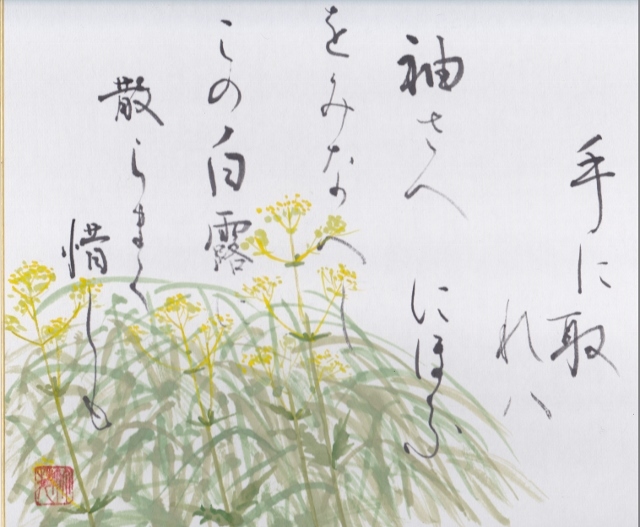 手に取
れハ
袖さへ
にほふ
をみなへし
この白露
散らまく
惜しも